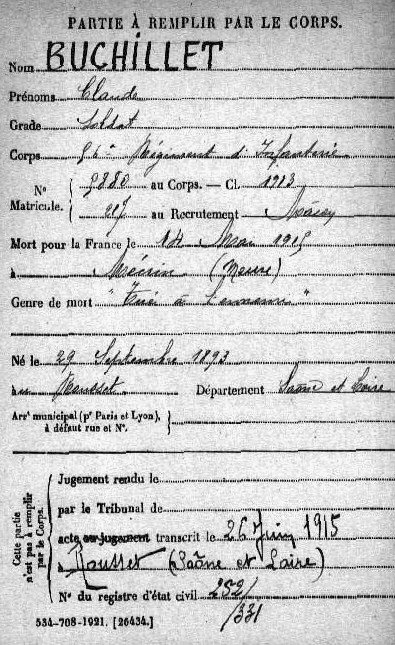 PARTIE À REMPLIR PAR LE CORPS.
Nom BUCHILLET
Prénoms Claude
Grade Soldat
Corps Régiment d'Infanterie
N° Matricule. { 9880 au Corps. — Cl. 1913
217 au Recrutement Mâcon
Mort pour la France le 14 Mai 1915
à Mécrin (Meuse)
Genre de mort "Tué à l'ennemi"
Né le 29 Septembre 1893
au Rousset Département Saône et Loire
Arr^t municipal (p^r Paris et Lyon), à défaut rue et N°. }
Cette partie n'est pas à remplir par le Corps.
Jugement rendu le
par le Tribunal de
acte ou jugement transcrit le 26 Juin 1915
à Rousset (Saône et Loire)
N° du registre d'état civil 252/
/331
534-708-1921. [26434.]